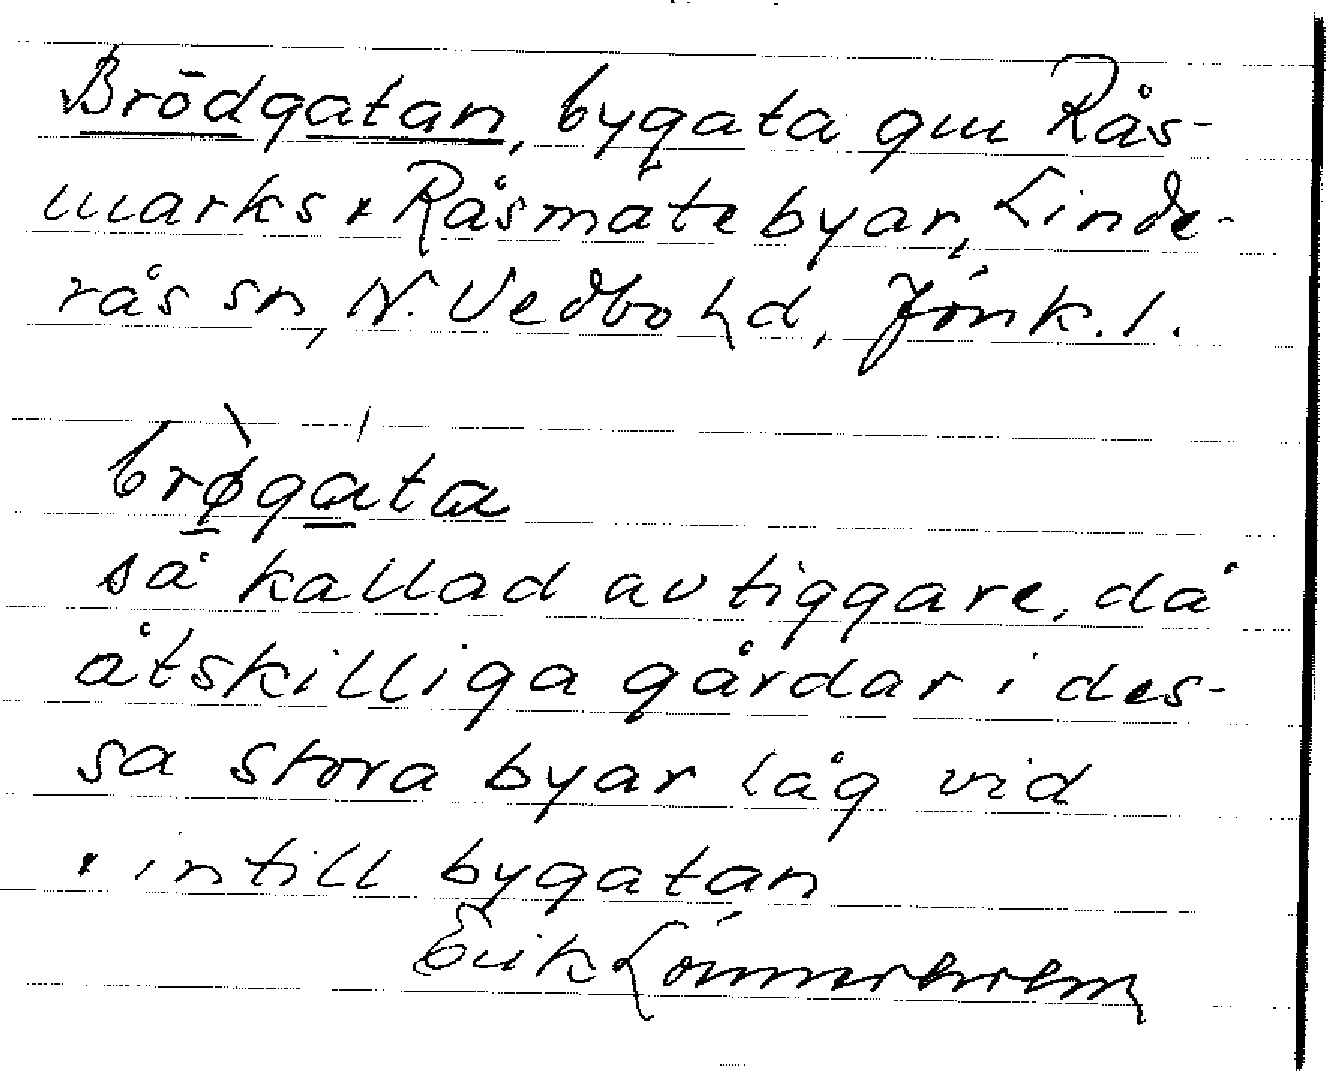 Brödgatan, bygata gm Rås-
marks & Råsmåte byar, Linde-
rås sn, N. Vedbo hd, Jönk. l.
brøgata
så kallad av tiggare, då
åtskilliga gårdar i des-
sa stora byar låg vid
& intill bygatan
Erik Lönnerholm